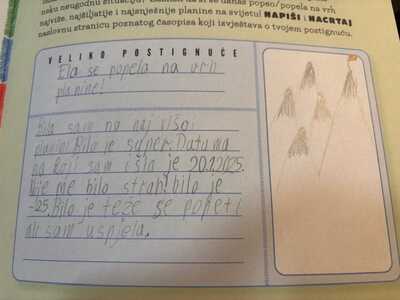 neku neugodnu situaciju? Zamisli da si se danas popeo/popela na vrh
najviše, najšiljatije i najsnježnije planine na svijetu! NAPIŠI i NACRTAJ
naslovnu stranicu poznatog časopisa koji izvještava o tvojem postignuću.
VELIKO POSTIGNUĆE
Ela se popela na vrh
planine!
Bila sam na naj višoj
planini! Bilo je super. Datum a
na koji sam išla je 20.1.2025.
Nije me bilo strah! bilo je
-25. Bilo je teže se popeti
ali sam uspjela.